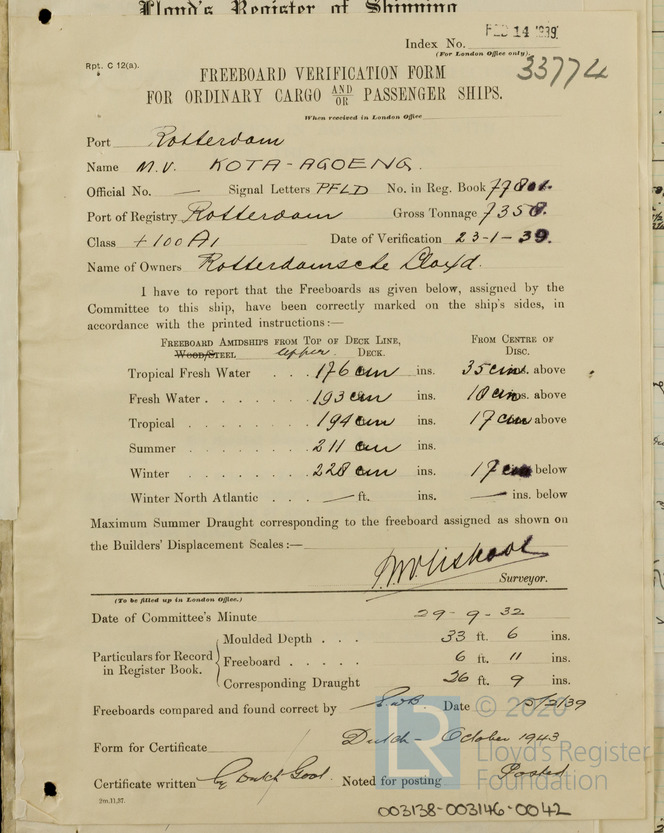 Lloyd's Register of Shipping
FEB 14 1939
Index No.
(For London Office only).
33774
Rpt. C 12(a).
FREEBOARD VERIFICATION FORM
FOR ORDINARY CARGO AND/OR PASSENGER SHIPS.
When received in London Office
Port Rotterdam
Name M.V. KOTA-AGOENG.
Official No. — Signal Letters PFLD No. in Reg. Book 77801.
Port of Registry Rotterdam Gross Tonnage 7358.
Class +100A1 Date of Verification 23-1-39.
Name of Owners Rotterdamsche Lloyd.
I have to report that the Freeboards as given below, assigned by the
Committee to this ship, have been correctly marked on the ship's sides, in
accordance with the printed instructions:—
FREEBOARD AMIDSHIPS FROM TOP OF DECK LINE, FROM CENTRE OF
WOOD/STEEL upper DECK. DISC.
Tropical Fresh Water . . . 176 cm ins. 35 cm ins. above
Fresh Water . . . . . 193 cm ins. 18 cm ins. above
Tropical . . . . . 194 cm ins. 17 cm above
Summer . . . . . 211 cm ins.
Winter . . . . . 228 cm ins. 17 cm below
Winter North Atlantic . . . — ft. ins. — ins. below
Maximum Summer Draught corresponding to the freeboard assigned as shown on
the Builders' Displacement Scales:—
Surveyor.
(To be filled up in London Office.)
Date of Committee's Minute 29-9-32
Particulars for Record in Register Book.
Moulded Depth . . . 33 ft. 6 ins.
Freeboard . . . . . 6 ft. 11 ins.
Corresponding Draught 26 ft. 9 ins.
Freeboards compared and found correct by Date 15/2/39
Form for Certificate Dutch October 1943
Certificate written Noted for posting Posted
2m.11,37.
003138-003146-0042
LR
© 2020
Lloyd's Register
Foundation